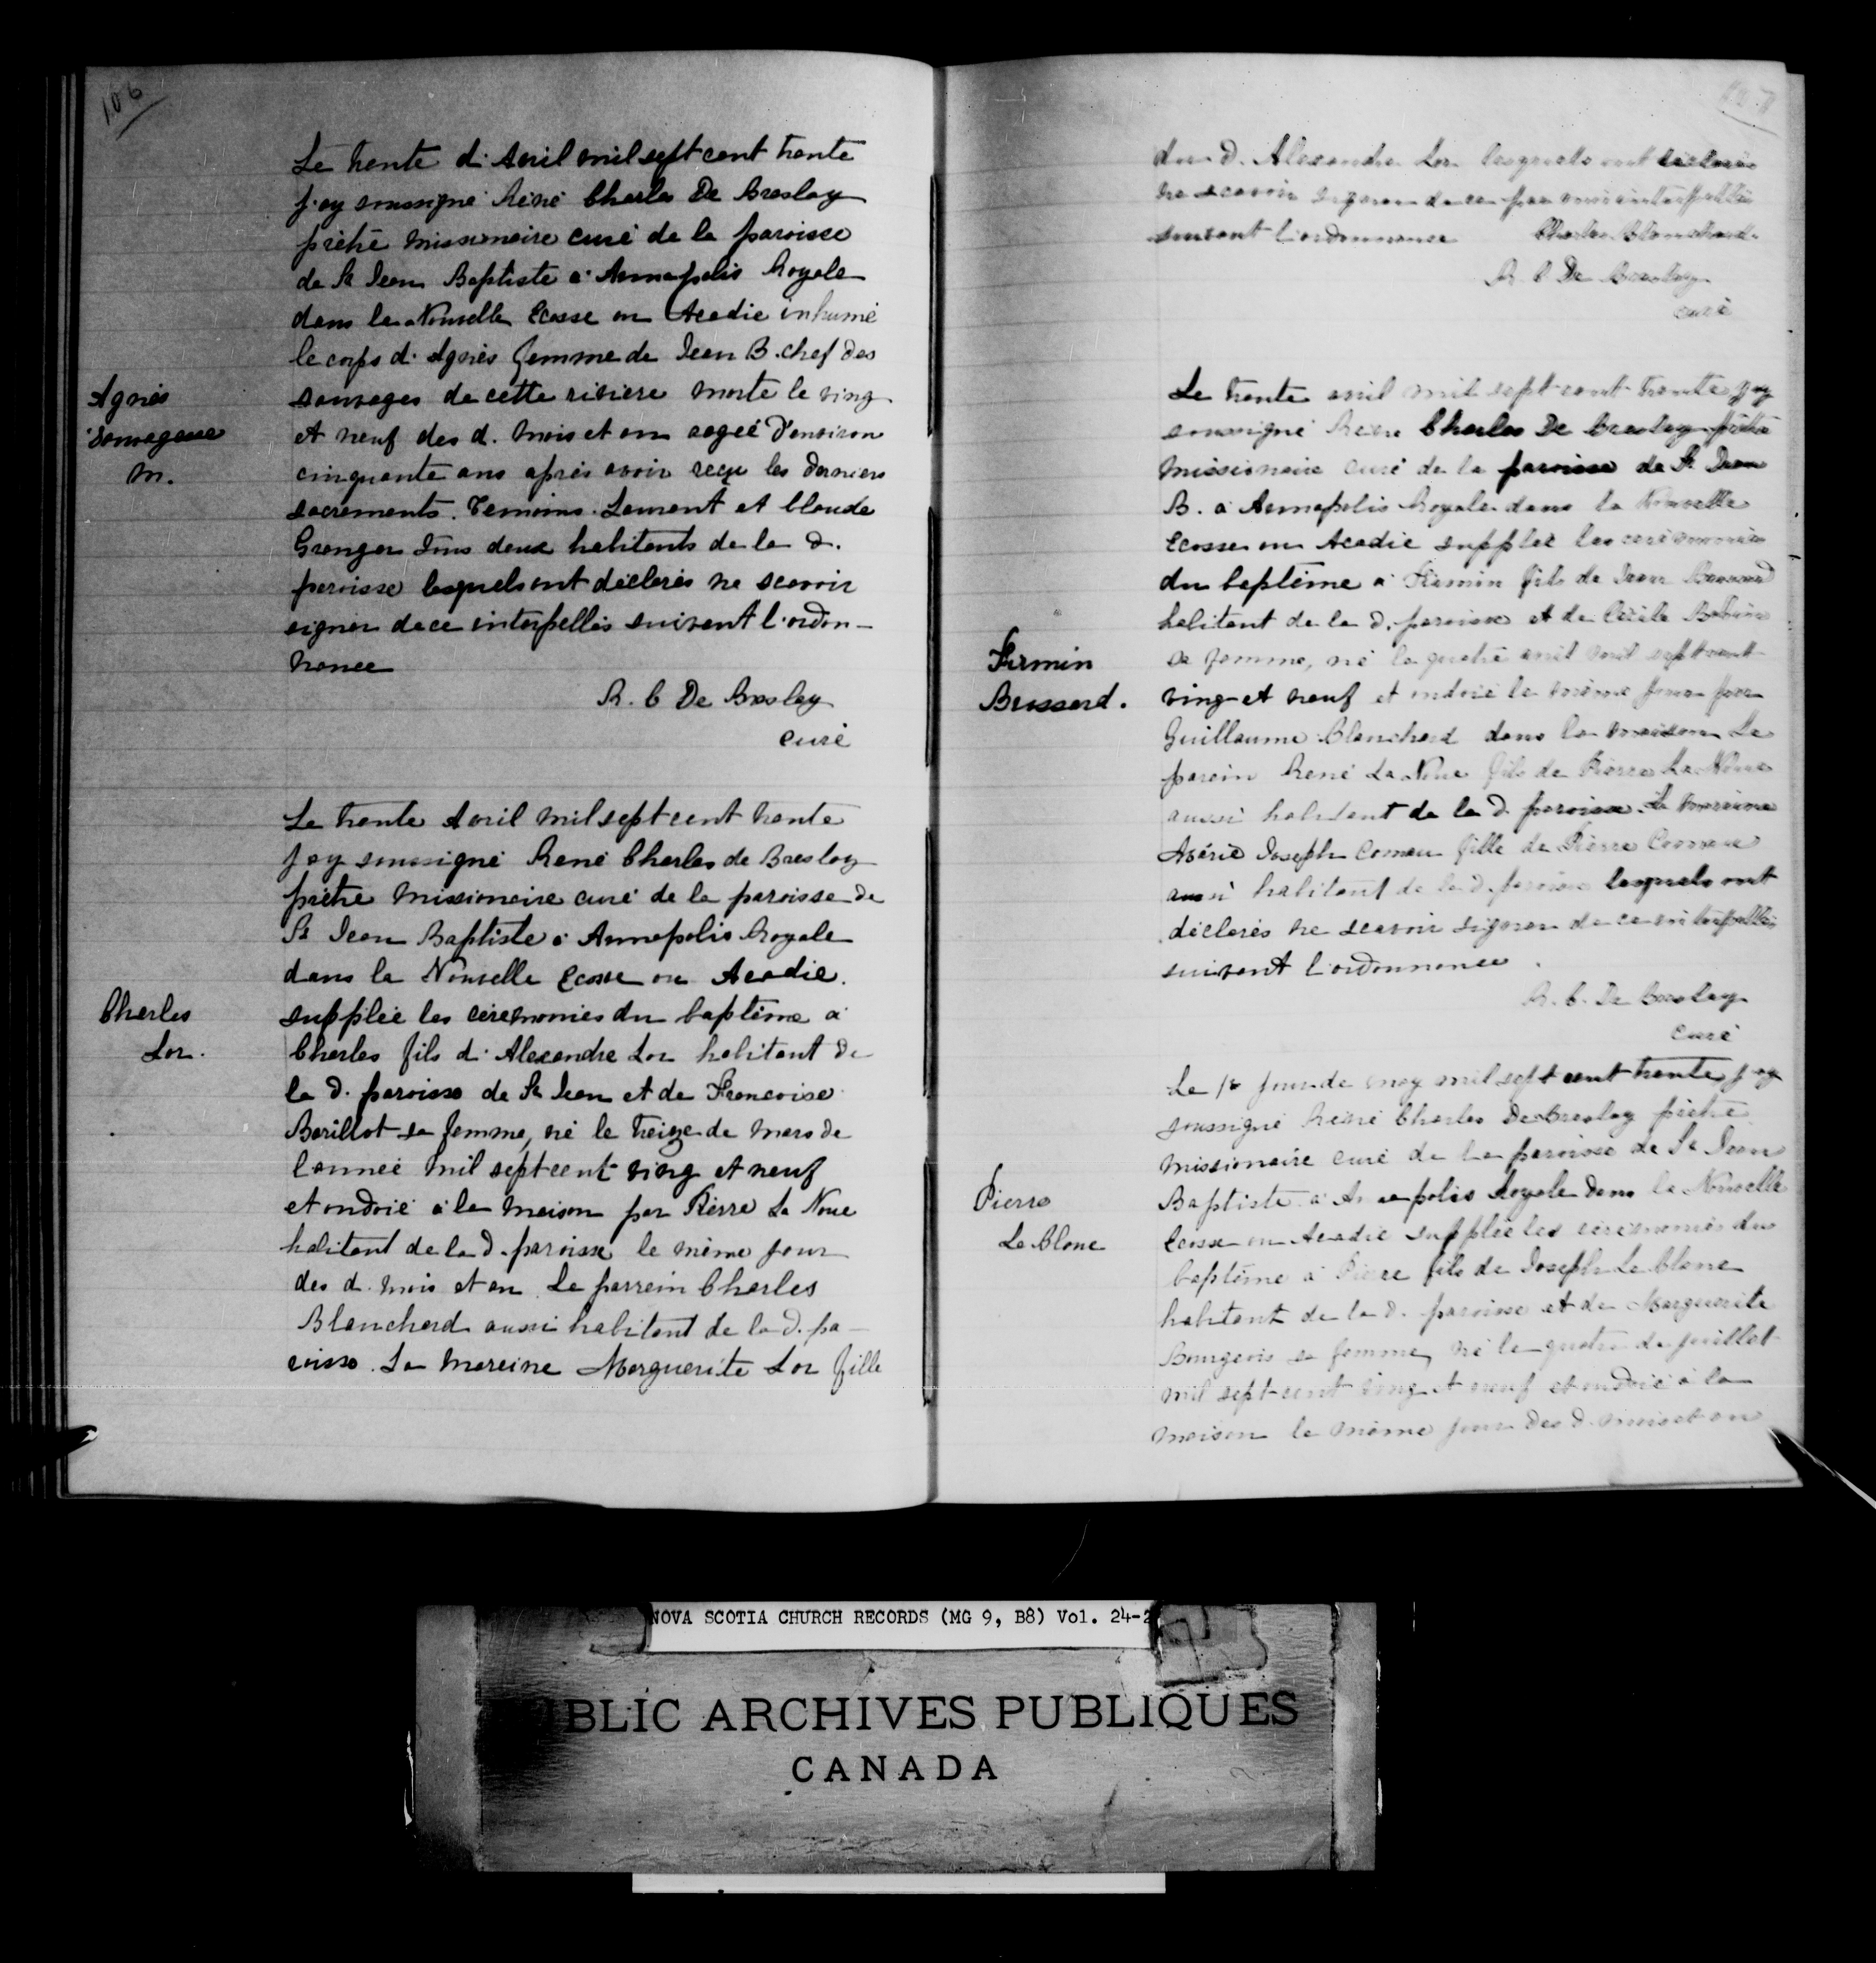 106
Le trente d'Avril mil sept cent trente
j'ay soussigné Réné Charles De Breslay
prêtre missionaire curé de la paroisse
de St Jean Baptiste a Annapolis Royale
dans la Nouvelle Ecosse ou Acadie inhumé
le corps d'Agnès femme de Jean B. chef des
Agnès
sauvages de cette riviere morte le ving
Sauvagesse
et neuf des d. mois et an aagée d'environ
m.
cinquante ans après avoir reçu les derniers
sacrements. Temoins Laurent et Claude
Granger tous deux habitants de la d.
paroisse lesquels ont déclarés ne scavoir
signer de ce interpellés suivant l'ordon-
nance
R. C De Breslay
curé
Le trente Avril mil sept cent trente
j'ay soussigné René Charles de Breslay
prêtre missionaire curé de la paroisse de
St Jean Baptiste à Annapolis Royale
dans la Nouvelle Ecosse ou Acadie.
Charles
supplée les cérémonies du baptême a
Lor.
Charles fils d'Alexandre Lor habitant de
la d. paroisse de St Jean et de Francoise
Barillot sa femme, né le treize de mars de
l'année mil sept cent ving et neuf
et ondoié à la maison par Pierre La Noue
habitant de la d. paroisse le même jour
des d. mois et an. Le parrein Charles
Blanchard aussi habitant de la d. pa-
roisse. La mareine Marguerite Lor fille
du d. Alexandre Lor lesquels ont déclarés
ne scavoir signer de ce par moi interpellés
suivant l'ordonnance Charles Blanchard
R C De Breslay
curé
Le trente avril mil sept cent trente j'ay
soussigné Réné Charles De Breslay prêtre
missionaire curé de la paroisse de St Jean
B. a Annapolis Royale dans la Nouvelle
Ecosse ou Acadie supplée les cérémonies
du baptême a Firmin fils de Jean Brussard
habitant de la d. paroisse et de Cécile Babin
Firmin
sa femme, né le quatre avril mil sept cent
Brussard.
ving et neuf et ondoié le même jour par
Guillaume Blanchard dans la maison Le
parein René La Noue fils de Pierre La Noue
aussi habitant de la d. paroisse. La marreine
Joseph Comeau fille de Pierre Comeau
aussi habitant de la d. paroisse lesquels ont
déclarés ne scavoir signer de ce interpellés
suivant l'ordonnance.
R. C. De Breslay
curé
Le 1r jour de may mil sept cent trente j'ay
soussigné Réné Charles De Breslay prêtre
missionaire curé de la paroisse de St Jean
Pierre
Baptiste a Annapolis Royale dans la Nouvelle
Le Blanc
Ecosse ou Acadie supplée les cérémonies du
baptême a Pierre fils de Joseph Le Blanc
habitant de la d. paroisse et de Marguerite
Bourgeois sa femme, né le quatre de juillet
mil sept cent ving et neuf et ondoié à la
maison le même jour des d. mois et an
NOVA SCOTIA CHURCH RECORDS (MG 9, B8) Vol. 24-2
BLIC ARCHIVES PUBLIQUES
CANADA